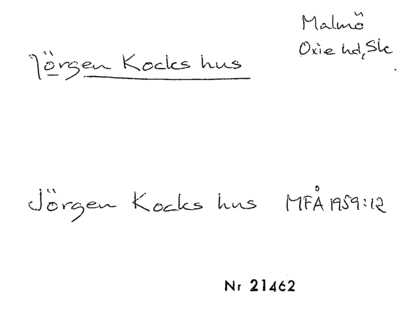 Malmö
Oxie hd, Sk
Jörgen Kocks hus
Jörgen Kocks hus MFÅ 1959:12
Nr 21462